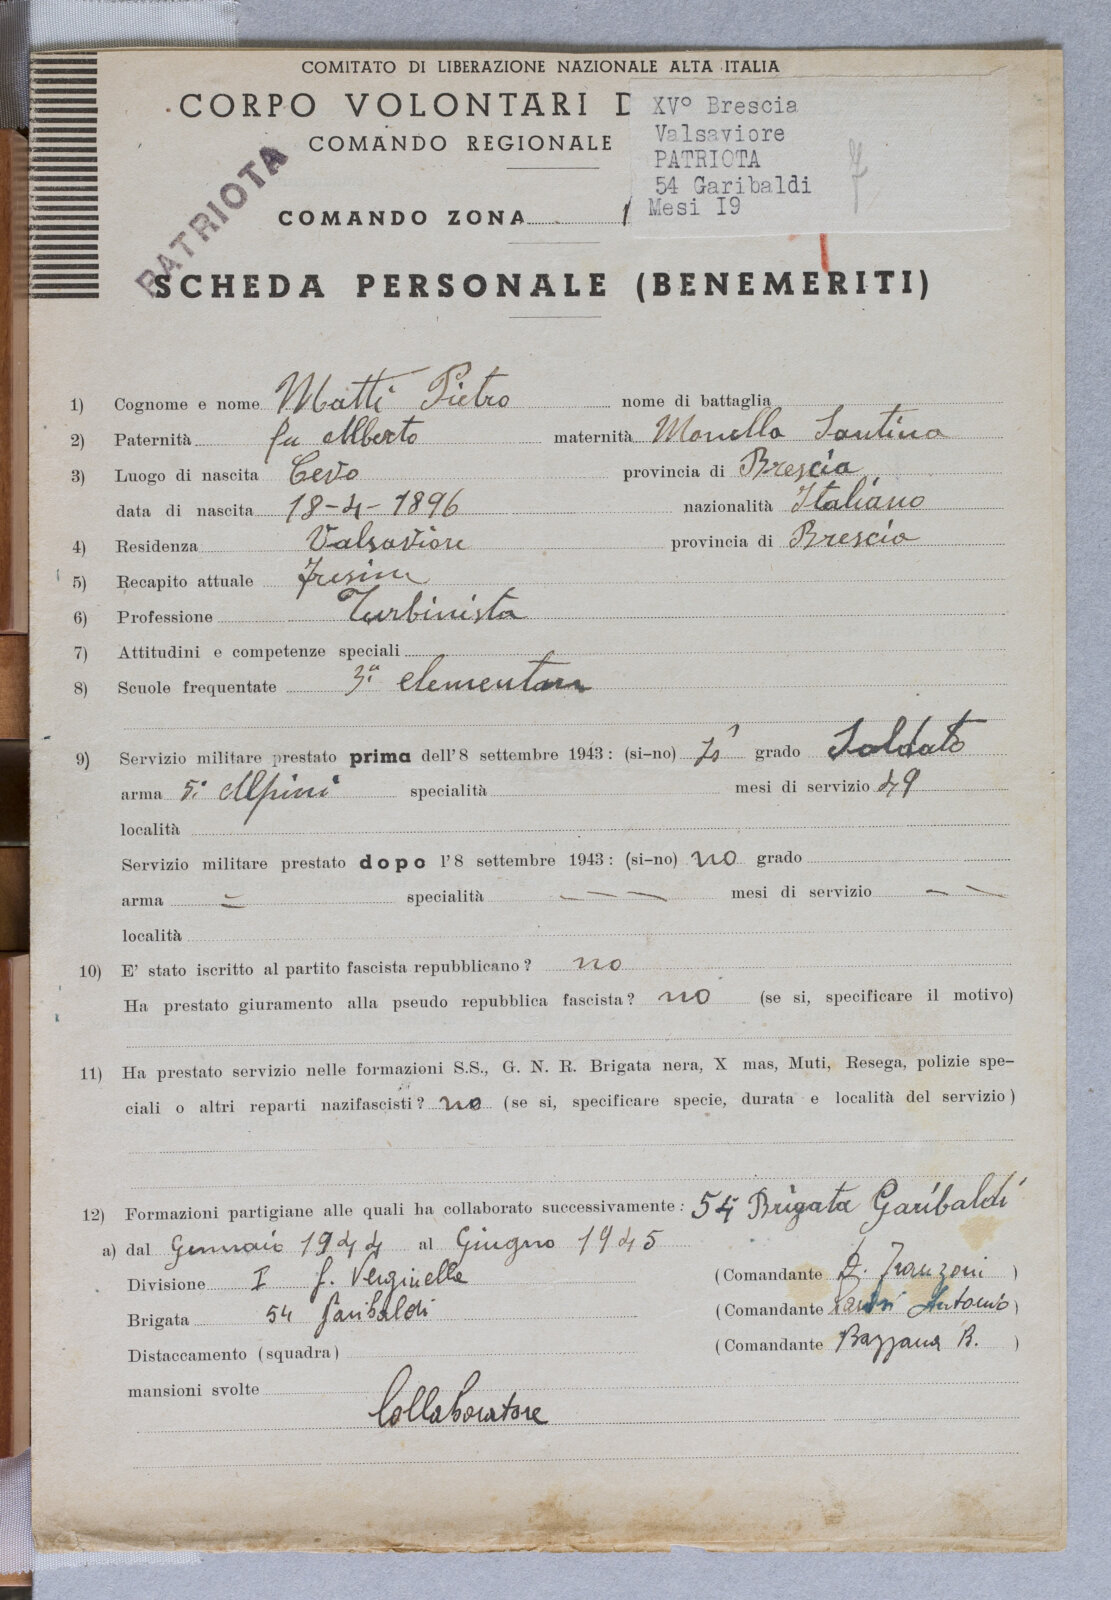 COMITATO DI LIBERAZIONE NAZIONALE ALTA ITALIA
CORPO VOLONTARI D
COMANDO REGIONALE
XVº Brescia
Valsaviore
PATRIOTA
54 Garibaldi
Mesi I9
PATRIOTA
COMANDO ZONA
SCHEDA PERSONALE (BENEMERITI)
1) Cognome e nome Matti Pietro nome di battaglia
2) Paternità fu Alberto maternità Monella Santina
3) Luogo di nascita Cevo provincia di Brescia
data di nascita 18-4-1896 nazionalità Italiano
4) Residenza Valsaviore provincia di Brescia
5) Recapito attuale Fresine
6) Professione Turbinista
7) Attitudini e competenze speciali
8) Scuole frequentate 3ª elementare
9) Servizio militare prestato prima dell'8 settembre 1943: (si-no) grado Soldato
arma 5º Alpini specialità mesi di servizio 49
località
Servizio militare prestato dopo l'8 settembre 1943: (si-no) no grado
arma = specialità — — — mesi di servizio — —
località
10) E' stato iscritto al partito fascista repubblicano? no
Ha prestato giuramento alla pseudo repubblica fascista? no (se si, specificare il motivo)
11) Ha prestato servizio nelle formazioni S.S., G. N. R. Brigata nera, X mas, Muti, Resega, polizie spe-
ciali o altri reparti nazifascisti? no (se si, specificare specie, durata e località del servizio)
12) Formazioni partigiane alle quali ha collaborato successivamente: 54 Brigata Garibaldi
a) dal Gennaio 1944 al Giugno 1945
Divisione I F. Verginella (Comandante Franzoni)
Brigata 54 Garibaldi (Comandante Antonio)
Distaccamento (squadra) (Comandante Bazzana B.)
mansioni svolte
Collaboratore